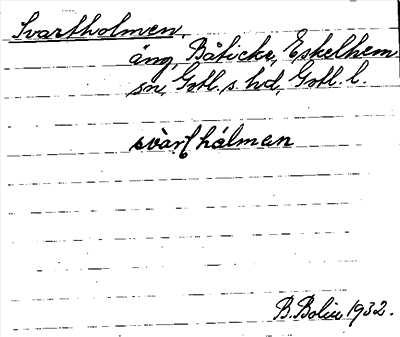 Svartholmen.
äng, Båticke, Eskelhem
sn, Gotl. s. hd, Gotl. l.
hálman
B. Bolin 1932.